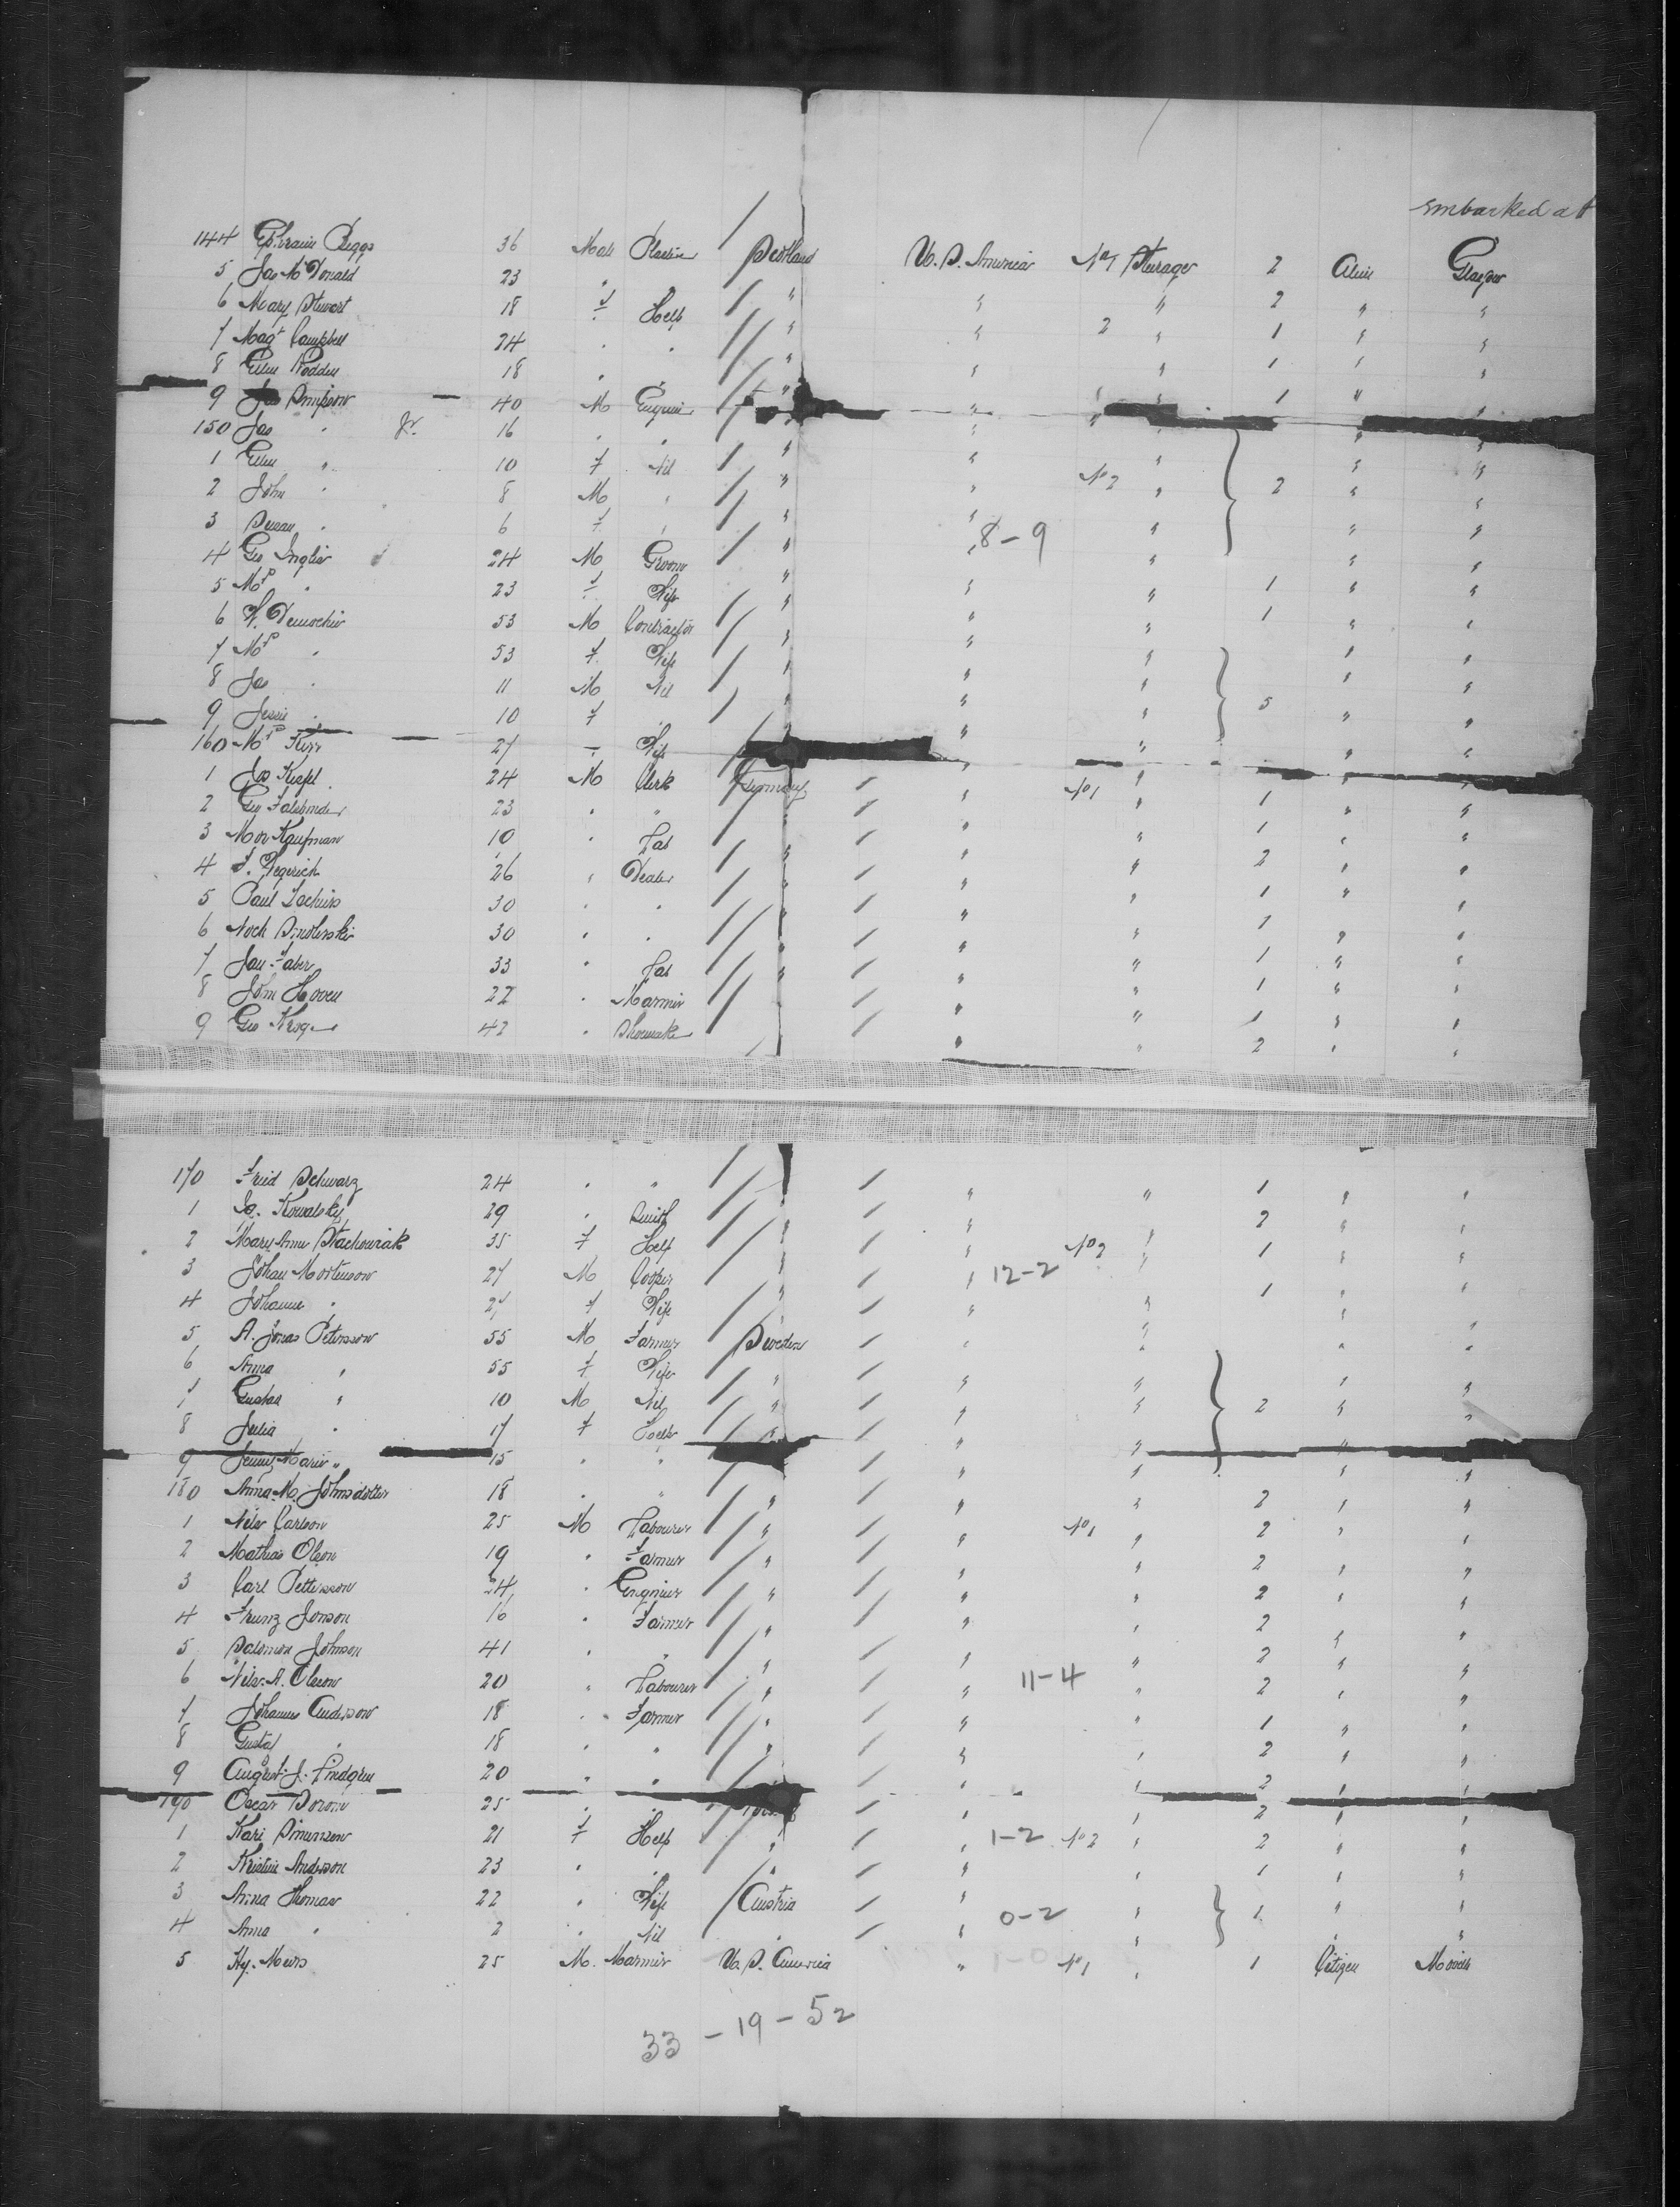 embarked at
144 Ephraim Beggs 36 Male Scotland U.S. America No 1 Steerage 2 Alien Glasgow
5 Jas McDonald 23 " " " " " 2 " "
6 Mary Stewart 18 f Help " " 2 " 1 " "
7 Magt Campbell 24 " " " " " 1 " "
8 Ellen Rodden 18 " " " " " 1 " "
9 Jas Simpson 40 M " " " " "
150 Jas " Jr. 16 " " " " " " "
1 Ellen " 10 f Nil " " No 2 " 2 " "
2 John " 8 M " " " " " "
3 Susan " 6 f " " 8-9 " " "
4 Geo Inglis 24 M Groom " " " "
5 Mrs " 23 f Wife " " " 1 " "
6 53 M Contractor " " " 1 " "
7 Mrs " 53 f Wife " " " " "
8 Jas " 11 M Nil " " " 5 " "
9 Jessie " 10 f " " " " " "
160 Mrs Kerr 27 - Wife " " " "
1 24 M Clerk Germany " No 1 " 1 " "
2 Geo 23 " " " " " 1 " "
3 Kaufman 10 " Lab " " " 2 " "
4 F. 26 " Dealer " " " 1 " "
5 Paul 30 " " " " " 1 " "
6 30 " " " " " 1 " "
7 Jan Faber 33 " Lab " " " 1 " "
8 John Hoven 22 " " " " 1 " "
9 Geo 42 " Shoemaker " " 2 " "
170 Fried Schwarz 24 " " " " 1 " "
1 Kowalsky 29 " Smith " " 2 " "
2 Mary Anne Stachowiak 35 f Help " " No 2 " 1 " "
3 Johan Mortenson 27 M Cooper " 12-2 " 1 " "
4 Johanne " 27 f Wife " " " " "
5 A. Jonas Petersson 55 M Farmer Sweden " " " "
6 Anna " 55 f Wife " " " " "
7 Gustaa " 10 M Nil " " " 2 " "
8 Julia " 17 f Help " " " " "
9 Jenny Marie " 15 " " " " " "
180 Anna M. Johnsdotter 18 " " " " " 2 " "
1 Nils Carlson 25 M Labourer " " No 1 " 2 " "
2 Mathias Olson 19 " Farmer " " " 2 " "
3 Carl Pettersson 24 " Engineer " " " 2 " "
4 Franz Jonson 16 " Farmer " " " 2 " "
5 Salomon Johnson 41 " " " " " 2 " "
6 Nils A. Olsson 20 " Labourer " " 11-4 " 2 " "
7 Johannes Anderson 18 " Farmer " " " 1 " "
8 Gustaf " 18 " " " " " 2 " "
9 August J. Lindgren 20 " " " " 2 " "
190 Oscar 25 " " " " 2 " "
1 Kari Simonsen 21 f Help " " 1-2 No 2 " 2 " "
2 Kristine Anderson 23 " " " " " 1 " "
3 Anna Thomas 22 " Wife Austria " " " "
4 Anna " 2 " Nil " " 0-2 " 1 " "
5 Hy. Meers 25 M. U.S. America " 1-0 No 1 " 1 Citizen
33 - 19 - 52